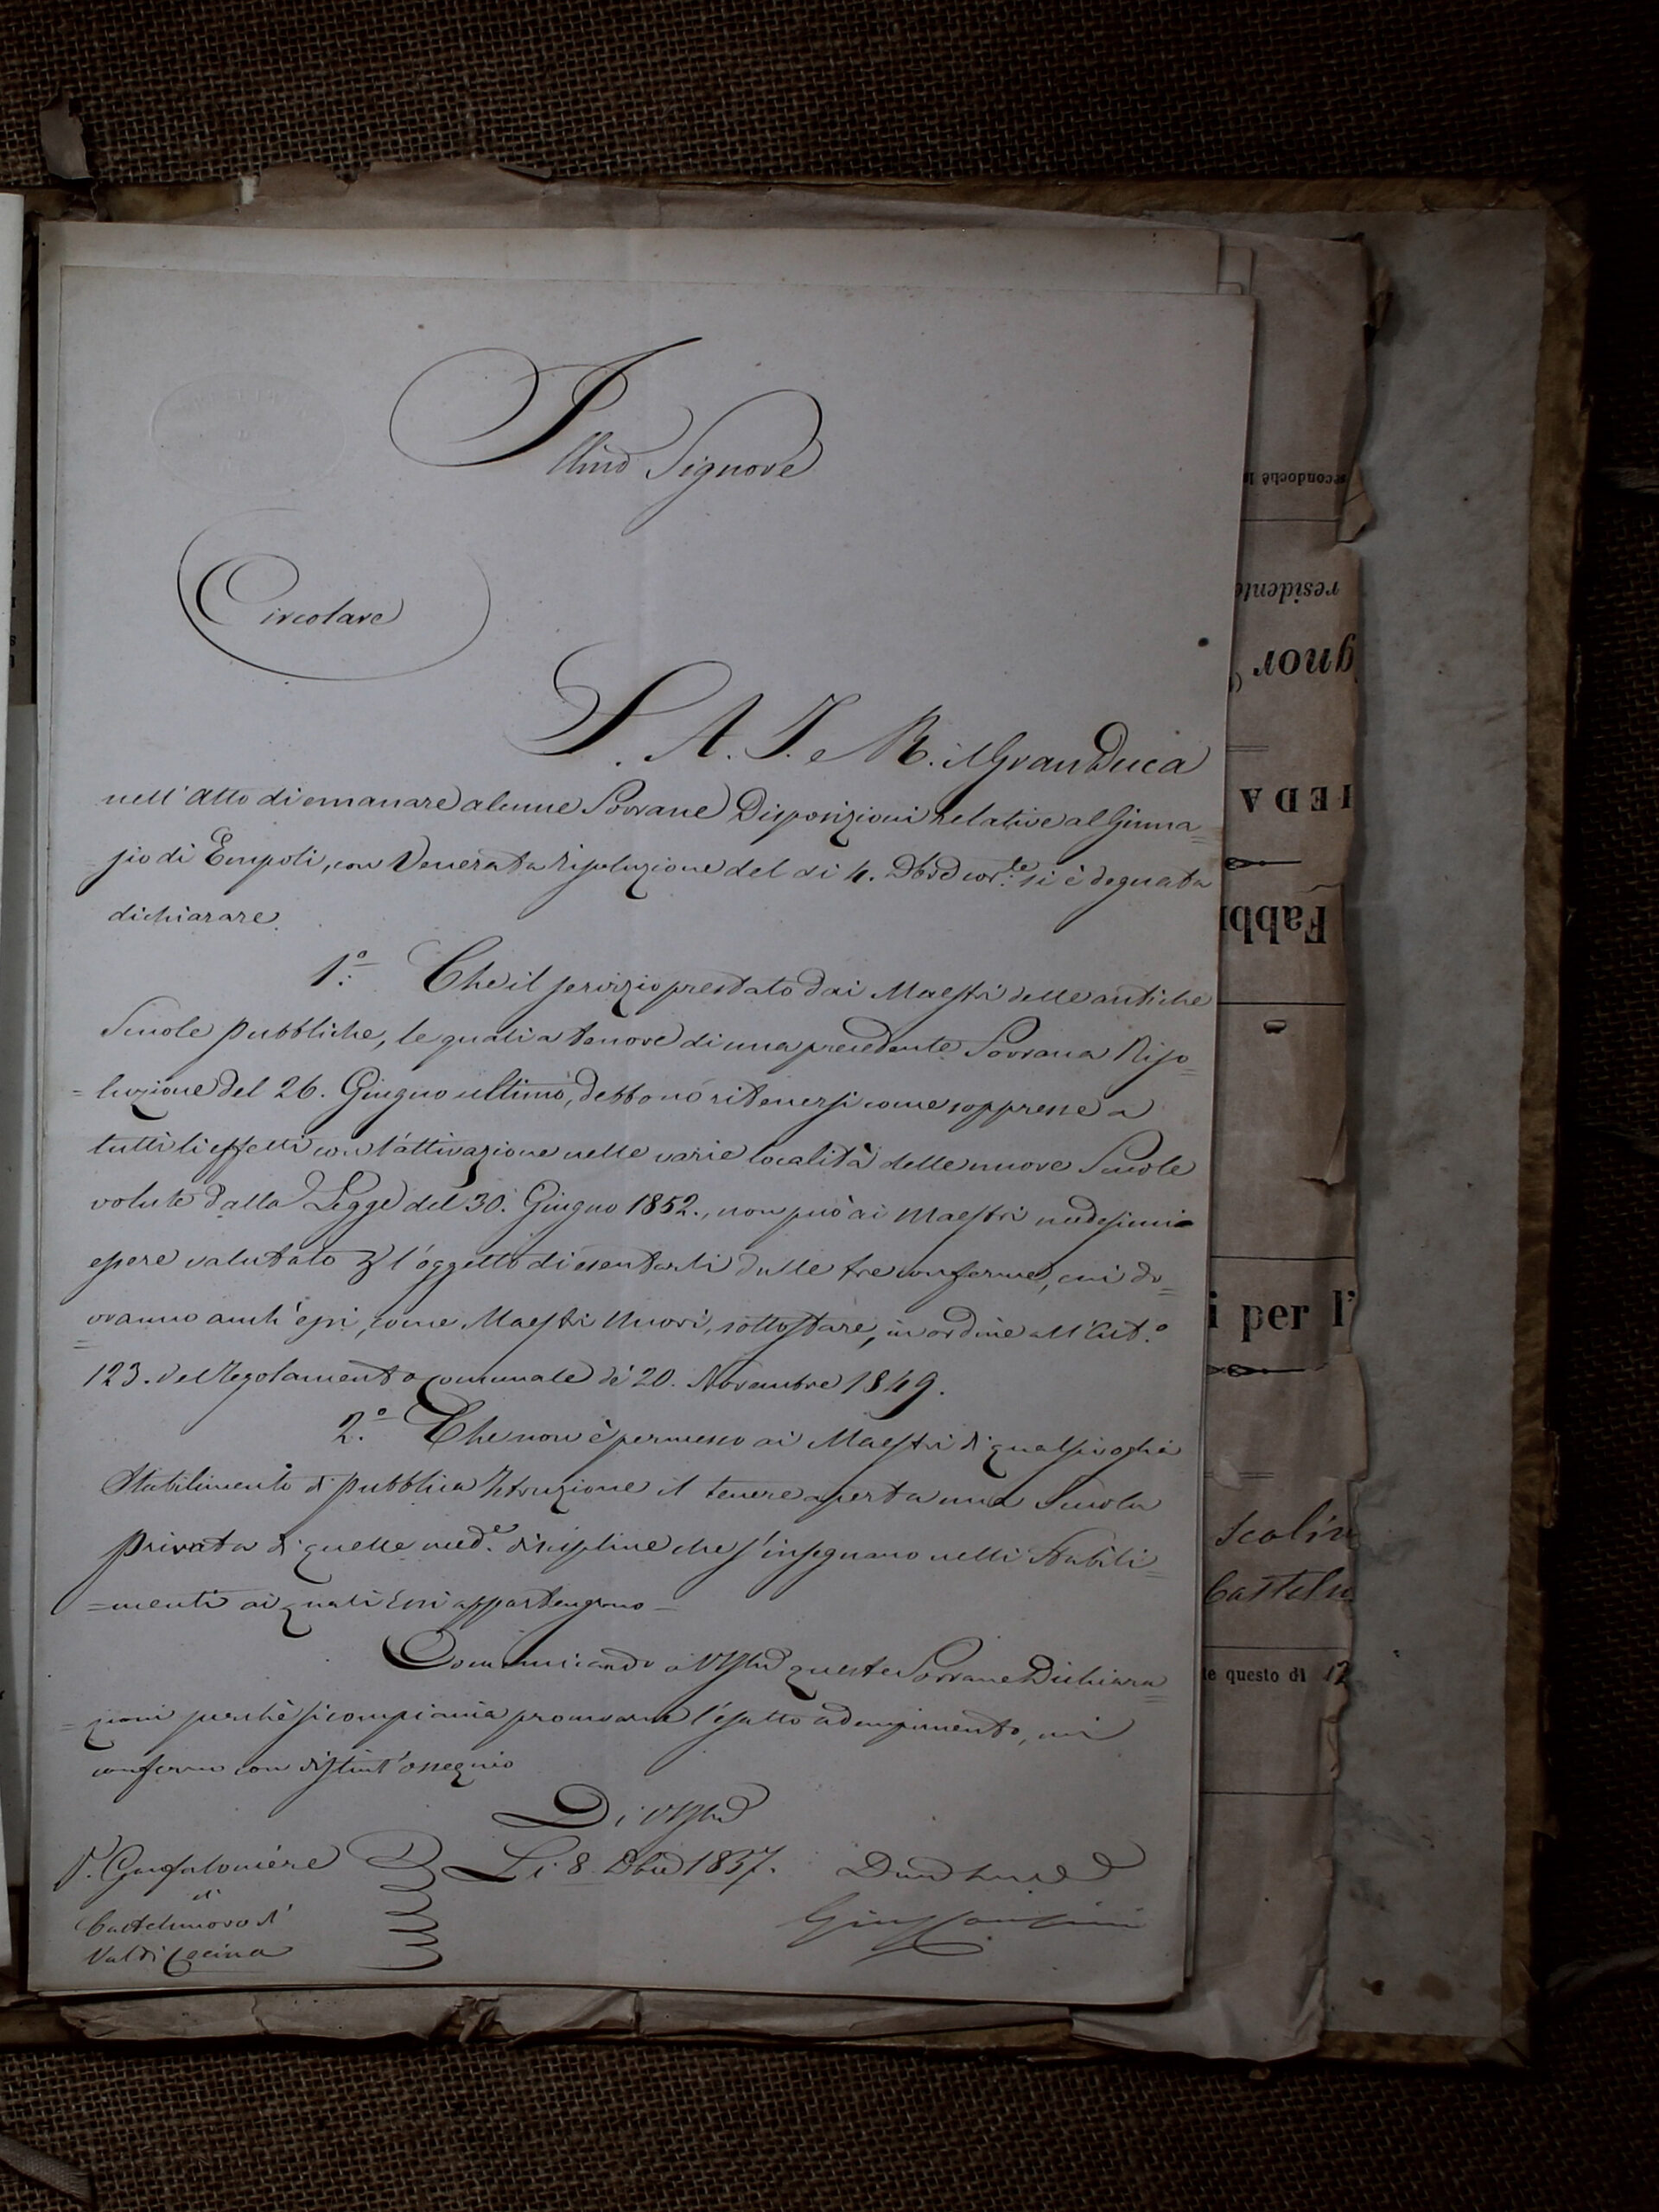 Illmo Signore
Circolare
S. A. I. e R. il Gran Duca
nell'Atto di emanare alcune Sovrane Disposizioni relative al Ginna=
sio di Empoli, con Venerata Risoluzione del di 4. Xbre corr.te si è degnata
dichiarare.
1.° Che il servizio prestato dai Maestri delle antiche
Scuole pubbliche, le quali a tenore di una precedente Sovrana Riso=
=luzione del 26. Giugno ultimo, debbono ritenersi come soppresse a
tutti li effetti con l'attivazione nelle varie località delle nuove Scuole
volute dalla Legge del 30. Giugno 1852., non può ai Maestri medesimi
essere valutato l'oggetto di esentarli dalle tre conferme, cui do=
=vranno anch'essi, come Maestri Nuovi, sottostare, in ordine all'Art.°
123. del Regolamento comunale de' 20. Novembre 1849.
2.° Che non è permesso ai Maestri di qualsivoglia
Stabilimento di pubblica Istruzione il tenere aperta una Scuola
privata di quelle med.e discipline che s'insegnano nelli Stabili=
=menti ai quali Essi appartengono=
Comunicando a VS Illma queste Sovrane Dichiara=
=zioni perchè si compiaccia procurarne l'esatto adempimento, mi
confermo con distint'ossequio
Di VS Illma
Li 8. Xbre 1857.
S. Gonfaloniere
di
Castelnuovo di
Val di Cecina
secondochè
residente
gnor
FEDA
Fabb
i per l'
Scolin
Casteln
te questo dì 12